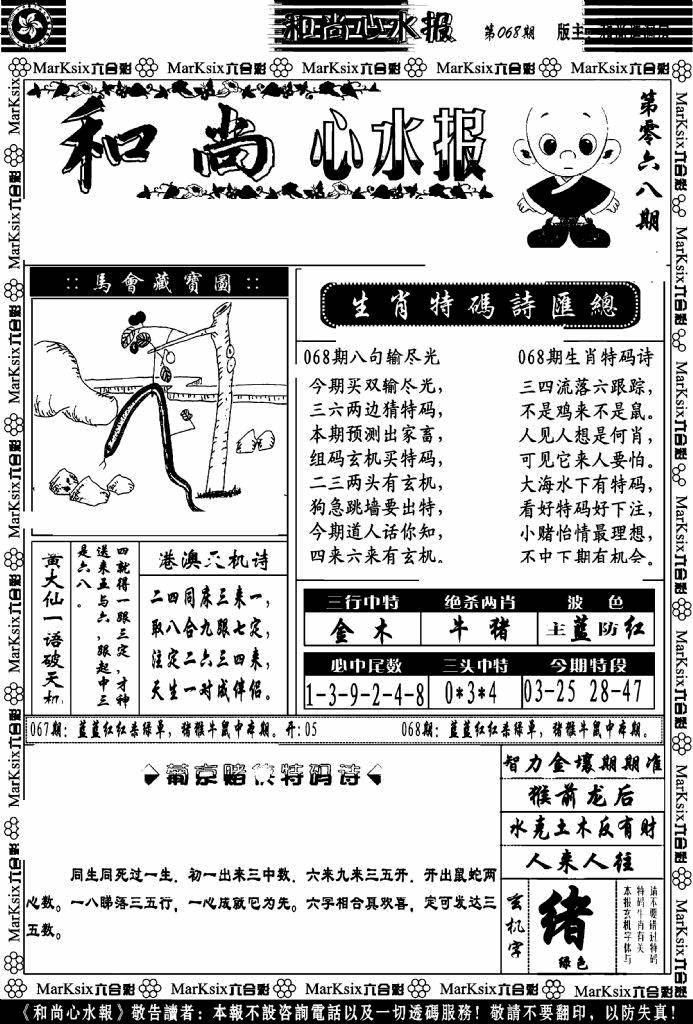 和尚心水报 第068期 版主:
MarKsix六合彩 MarKsix六合彩 MarKsix六合彩 MarKsix六合彩 MarKsix六合彩
和尚心水报
第零六八期
::馬會藏寶圖::
生肖特碼詩匯總
068期八句输尽光
今期买双输冬光,
三六两边猜特码,
本期预测出家畜,
组码玄机买特码,
二三两头有玄机,
狗急跳墙要出特,
今期道人话你知,
四来六来有玄机。
068期生肖特码诗
三四流落六跟踪,
不是鸡来不是鼠。
人见人想是何肖,
可见它来人要怕。
大海水下有特码,
看好特码好下注,
小赌怡情最理想,
不中下期有机会。
黄大仙一语破天机
四就得一跟三定,才神
送来五与六,跟起中三
是六八。
港澳天机诗
二四同床三来一,
取八合九跟七定,
注定二六三四来,
天生一对成伴侣。
三行中特 绝杀两肖 波色
金木 牛猪 主蓝防红
必中尾数 三头中特 今期特段
1-3-9-2-4-8 0*3*4 03-25 28-47
067期:蓝蓝红红杀绿单,猪猴牛鼠中本期。开:05
068期:蓝蓝红红杀绿单,猪猴牛鼠中本期。
葡京赌侠特码诗
同生同死过一生.初一出来三中数.六来九来三五开.开出鼠蛇两
心数。一八睇落三五行,一心成就它为先。六字相合真欢喜,定可发达三
五数。
智力金壤期期准
猴前龙后
水克土木反有财
人来人往
玄机字
绪
绿色
请不要错过特码
特码生肖有关
本报玄机字体与
MarKsix六合彩 MarKsix六合彩 MarKsix六合彩 MarKsix六合彩 MarKsix六合彩
《和尚心水報》敬告讀者:本報不設咨詢電話以及一切透碼服務!敬請不要翻印,以防失真!